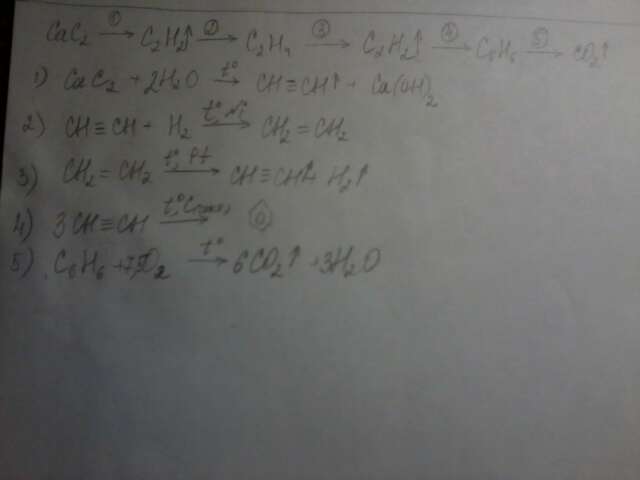 CaC2 →① C2H2↑ →② C2H4 →③ C2H2↑ →④ C6H6 →⑤ CO2↑
1) CaC2 + 2H2O →t° CH≡CH↑ + Ca(OH)2
2) CH≡CH + H2 →t°, Ni CH2=CH2
3) CH2=CH2 →t°, Pt CH≡CH↑+ H2↑
4) 3CH≡CH →t°, C
5) C6H6 + 7,5O2 →t° 6CO2↑ + 3H2O